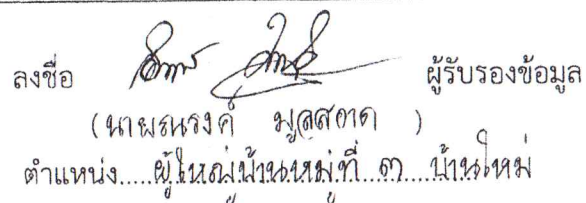 ลงชื่อ ผู้รับรองข้อมูล
(นายณรงค์ มูลสอาด)
ตำแหน่ง.....ผู้ใหญ่บ้านหมู่ที่ ๓ บ้านใหม่